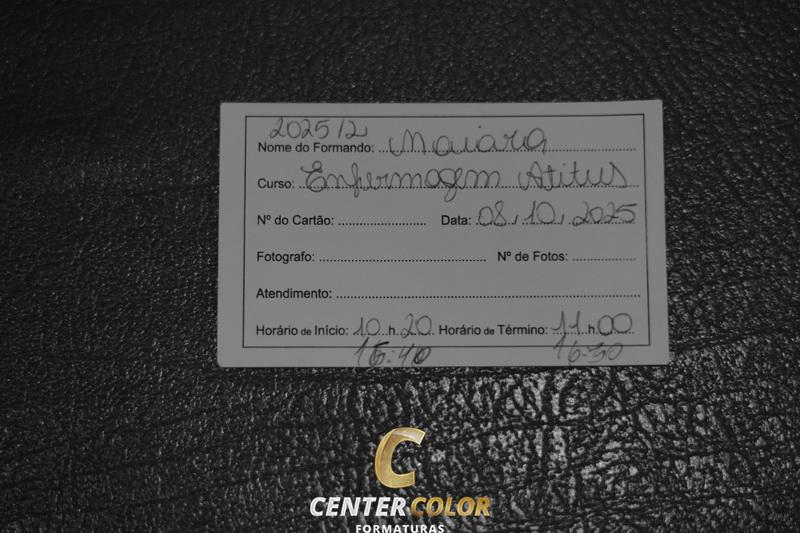 2025/2
Nome do Formando: Maiara
Curso: Enfermagem Atitus
Nº do Cartão: Data: 08.10.2025
Fotografo: Nº de Fotos:
Atendimento:
Horário de Início: 10 h 20 Horário de Término: 11 h 00
16:30
C
CENTER COLOR
FORMATURAS